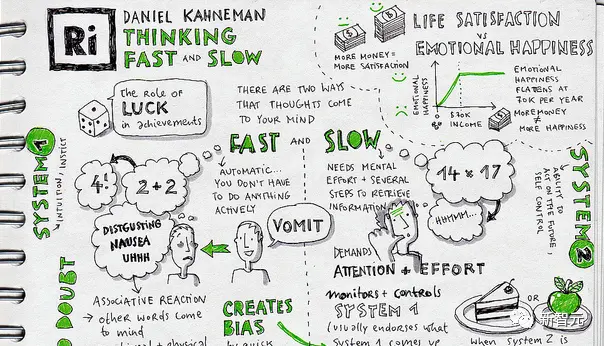 Ri
DANIEL KAHNEMAN
THINKING
FAST AND SLOW
The role of
LUCK
in achievements
THERE ARE TWO WAYS
THAT THOUGHTS COME
TO YOUR MIND
MORE MONEY =
MORE SATISFACTION
LIFE SATISFACTION
VS
EMOTIONAL HAPPINESS
EMOTIONAL
HAPPINESS
$70K
INCOME
EMOTIONAL
HAPPINESS
FLATTENS AT
70K PER YEAR
MORE MONEY
MORE HAPPINESS
FAST AND SLOW
SYSTEM 1
INTUITION, INSTICT
4!
2+2
AUTOMATIC...
YOU DON'T HAVE
TO DO ANYTHING
ACTIVELY
NEEDS MENTAL
EFFORT + SEVERAL
STEPS TO RETRIEVE
INFORMATION
14 × 17
HUMMM...
SYSTEM 2
ABILITY TO
ACT ON THE FUTURE,
SELF CONTROL
DISTGUSTING
NAUSEA
UHHH
VOMIT
DEMANDS
ATTENTION + EFFORT
DOUBT
ASSOCIATIVE REACTION
→ other words come
to mind
+ physical
CREATES
BIAS
by quick
monitors + controls
SYSTEM 1
(usually endorses what
system 1 comes up
OR
新智元
When SYSTEM 2 is